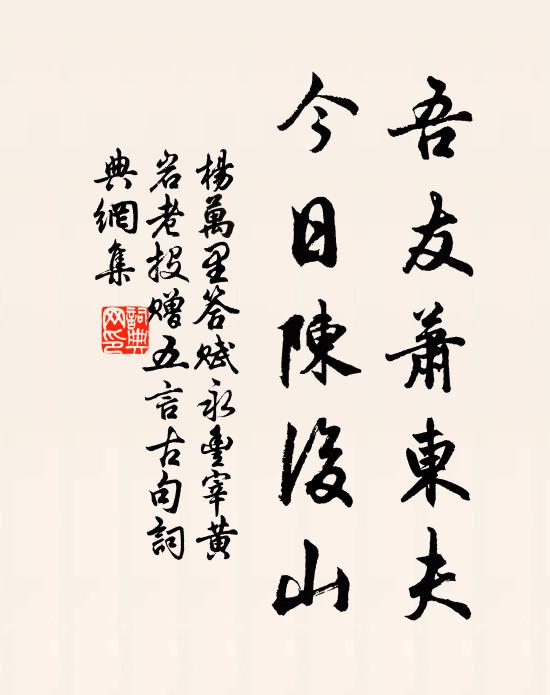 吾友蕭東夫
今日陳後山
楊萬里答賦永豐宰黃
岩老投贈五言古句詞
典網集
詞典
网印